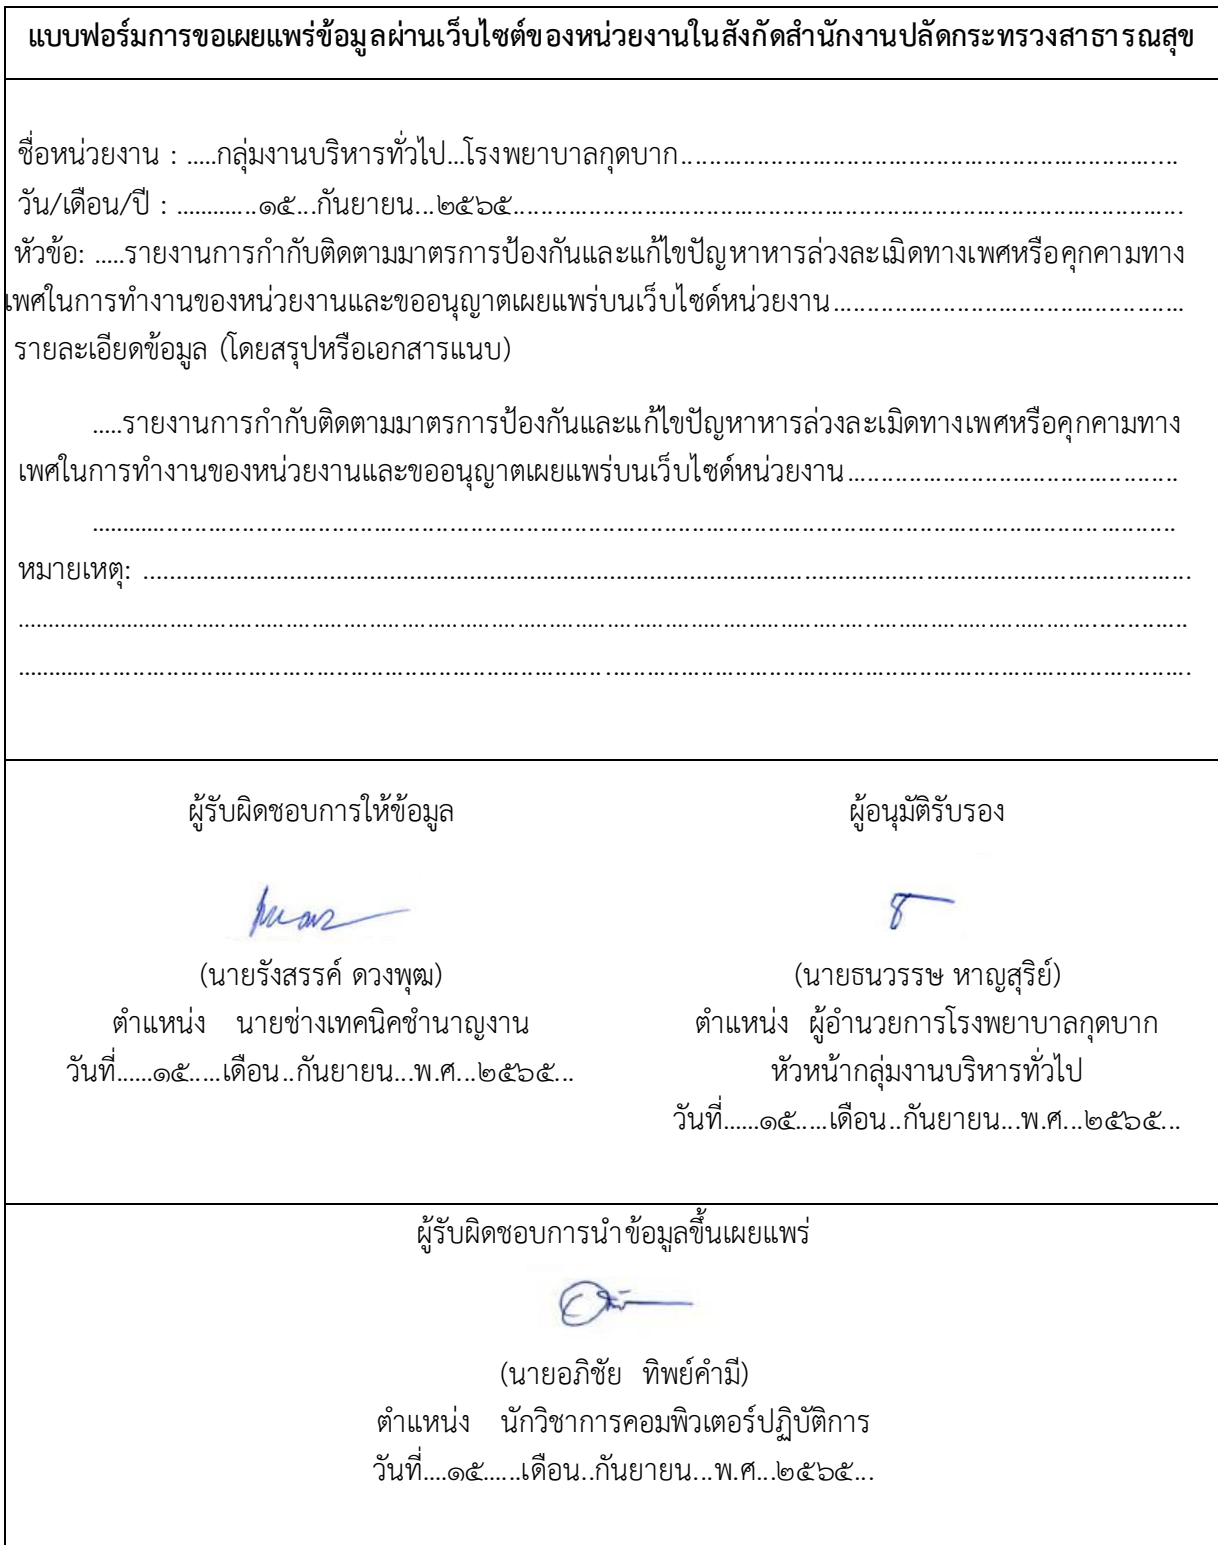 แบบฟอร์มการขอเผยแพร่ข้อมูลผ่านเว็บไซต์ของหน่วยงานในสังกัดสำนักงานปลัดกระทรวงสาธารณสุข
ชื่อหน่วยงาน : .....กลุ่มงานบริหารทั่วไป...โรงพยาบาลกุดบาก...............................................................
วัน/เดือน/ปี : .............๑๕...กันยายน...๒๕๖๕...............................................................................
หัวข้อ: .....รายงานการกำกับติดตามมาตรการป้องกันและแก้ไขปัญหาหารล่วงละเมิดทางเพศหรือคุกคามทาง
เพศในการทำงานของหน่วยงานและขออนุญาตเผยแพร่บนเว็บไซด์หน่วยงาน..................................................
รายละเอียดข้อมูล (โดยสรุปหรือเอกสารแนบ)
.....รายงานการกำกับติดตามมาตรการป้องกันและแก้ไขปัญหาหารล่วงละเมิดทางเพศหรือคุกคามทาง
เพศในการทำงานของหน่วยงานและขออนุญาตเผยแพร่บนเว็บไซด์หน่วยงาน................................................
..............................................................................................................................
หมายเหตุ: ......................................................................................................................
..............................................................................................................................
..............................................................................................................................
ผู้รับผิดชอบการให้ข้อมูล ผู้อนุมัติรับรอง
(นายรังสรรค์ ดวงพุฒ) (นายธนวรรษ หาญสุริย์)
ตำแหน่ง นายช่างเทคนิคชำนาญงาน ตำแหน่ง ผู้อำนวยการโรงพยาบาลกุดบาก
วันที่......๑๕.....เดือน..กันยายน...พ.ศ...๒๕๖๕... หัวหน้ากลุ่มงานบริหารทั่วไป
วันที่......๑๕.....เดือน..กันยายน...พ.ศ...๒๕๖๕...
ผู้รับผิดชอบการนำข้อมูลขึ้นเผยแพร่
(นายอภิชัย ทิพย์คำมี)
ตำแหน่ง นักวิชาการคอมพิวเตอร์ปฏิบัติการ
วันที่....๑๕......เดือน..กันยายน...พ.ศ...๒๕๖๕...